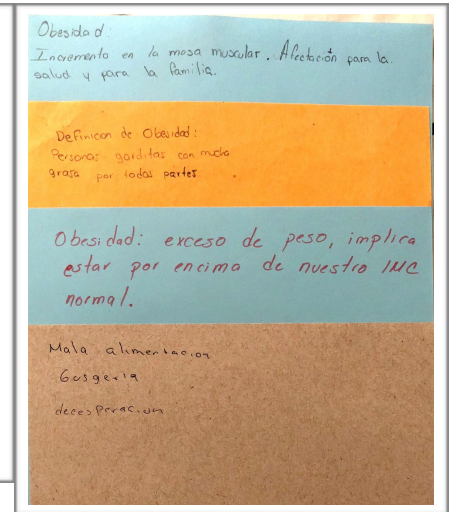 Obesidad:
Incremento en la masa muscular. Afectación para la
salud y para la familia.
Definicon de Obesidad:
Personas garditas con mucha
grasa por todas partes
Obesidad: exceso de peso, implica
estar por encima de nuestro IMC
normal.
Mala alimentacion
Gusgeria
decesperacion